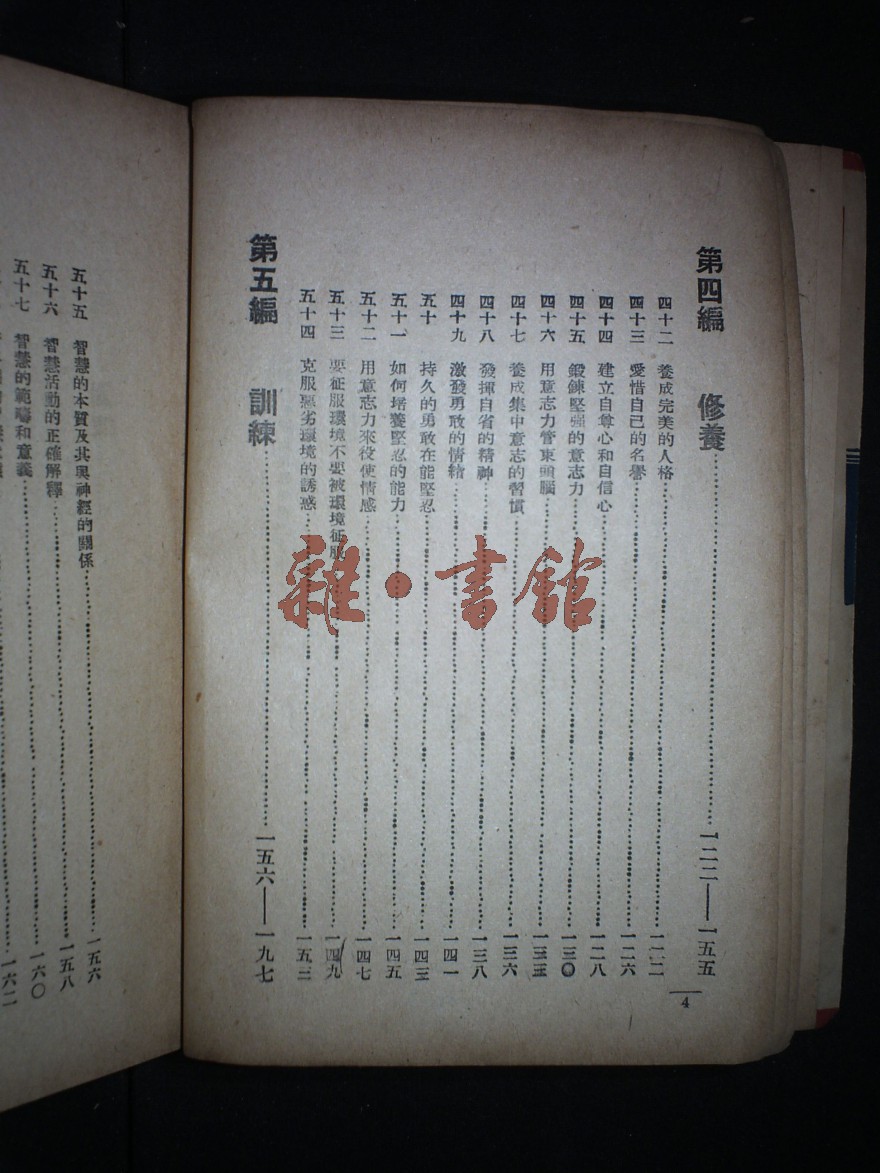 第四編　修養……一二二——一五五
四十二　養成完美的人格……一二二
四十三　愛惜自己的名譽……一二六
四十四　建立自尊心和自信心……一二八
四十五　鍛鍊堅强的意志力……一三〇
四十六　用意志力管束頭腦……一三三
四十七　養成集中意志的習慣……一三六
四十八　發揮自省的精神……一三八
四十九　激發勇敢的情緒……一四一
五十　持久的勇敢在能堅忍……一四三
五十一　如何培養堅忍的能力……一四五
五十二　用意志力來役使情感……一四七
五十三　要征服環境不要被環境征服……一四九
五十四　克服惡劣環境的誘惑……一五三
第五編　訓練……一五六——一九七
4
五十五　智慧的本質及其與神經的關係……一五六
五十六　智慧活動的正確解釋……一五八
五十七　智慧的範疇和意義……一六〇
一六二
雜·書館